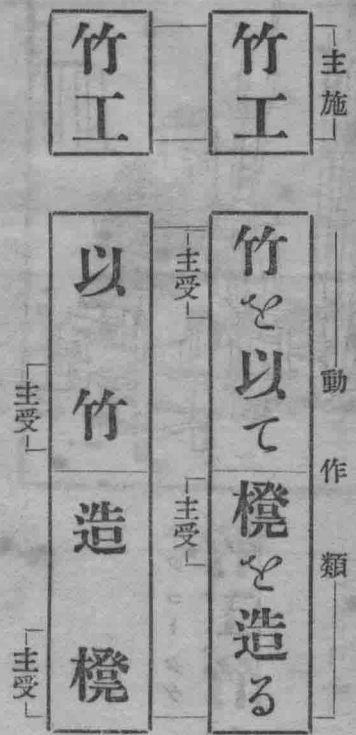 主施
動作類
竹工
竹を以て櫈を造る
主受
主受
竹工
以竹造櫈
主受
主受